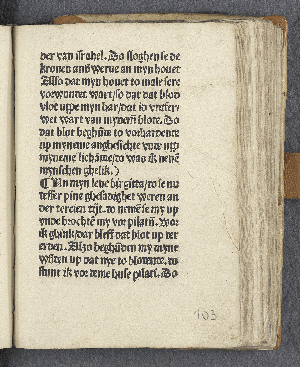 der van israhel. Do sloghen se de
kronen anderwerue an myn houet
Also dat myn houet to male sere
vorwundet wart/so dat dat blod
vlot utpe myn har/dat
wart van mynem blode. Do
dat blot beghunde to vorhardende
up myneme anghesichte vnde up
myneme lichamme/do was ik nenem
mynschen ghelik.)
¶ Un myn leue birgitta/do se nu
desser pine ghesadighet weren an
der tid. do nemen se my up
vnde brochten my vor pilatum. Wor
ik ghink/dar bleff dat blot up der
erden. Also beghunden my myne
up dat nye to blodende. do
stunt ik vor deme huse pilati. Do
103